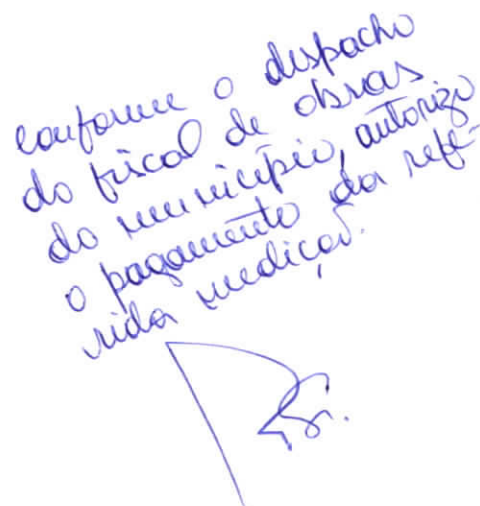 conforme o despacho
do fiscal de obras
do município, autorizo
o pagamento da refe-
rida medição.